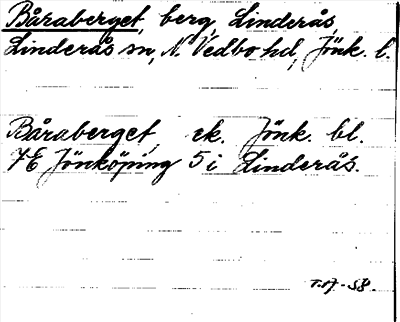 Båraberget, berg, Linderås,
Linderås sn, N. Vedbo hd, Jönk. l.
Båraberget, ek. Jönk. bl.
7E Jönköping 5 i Linderås.